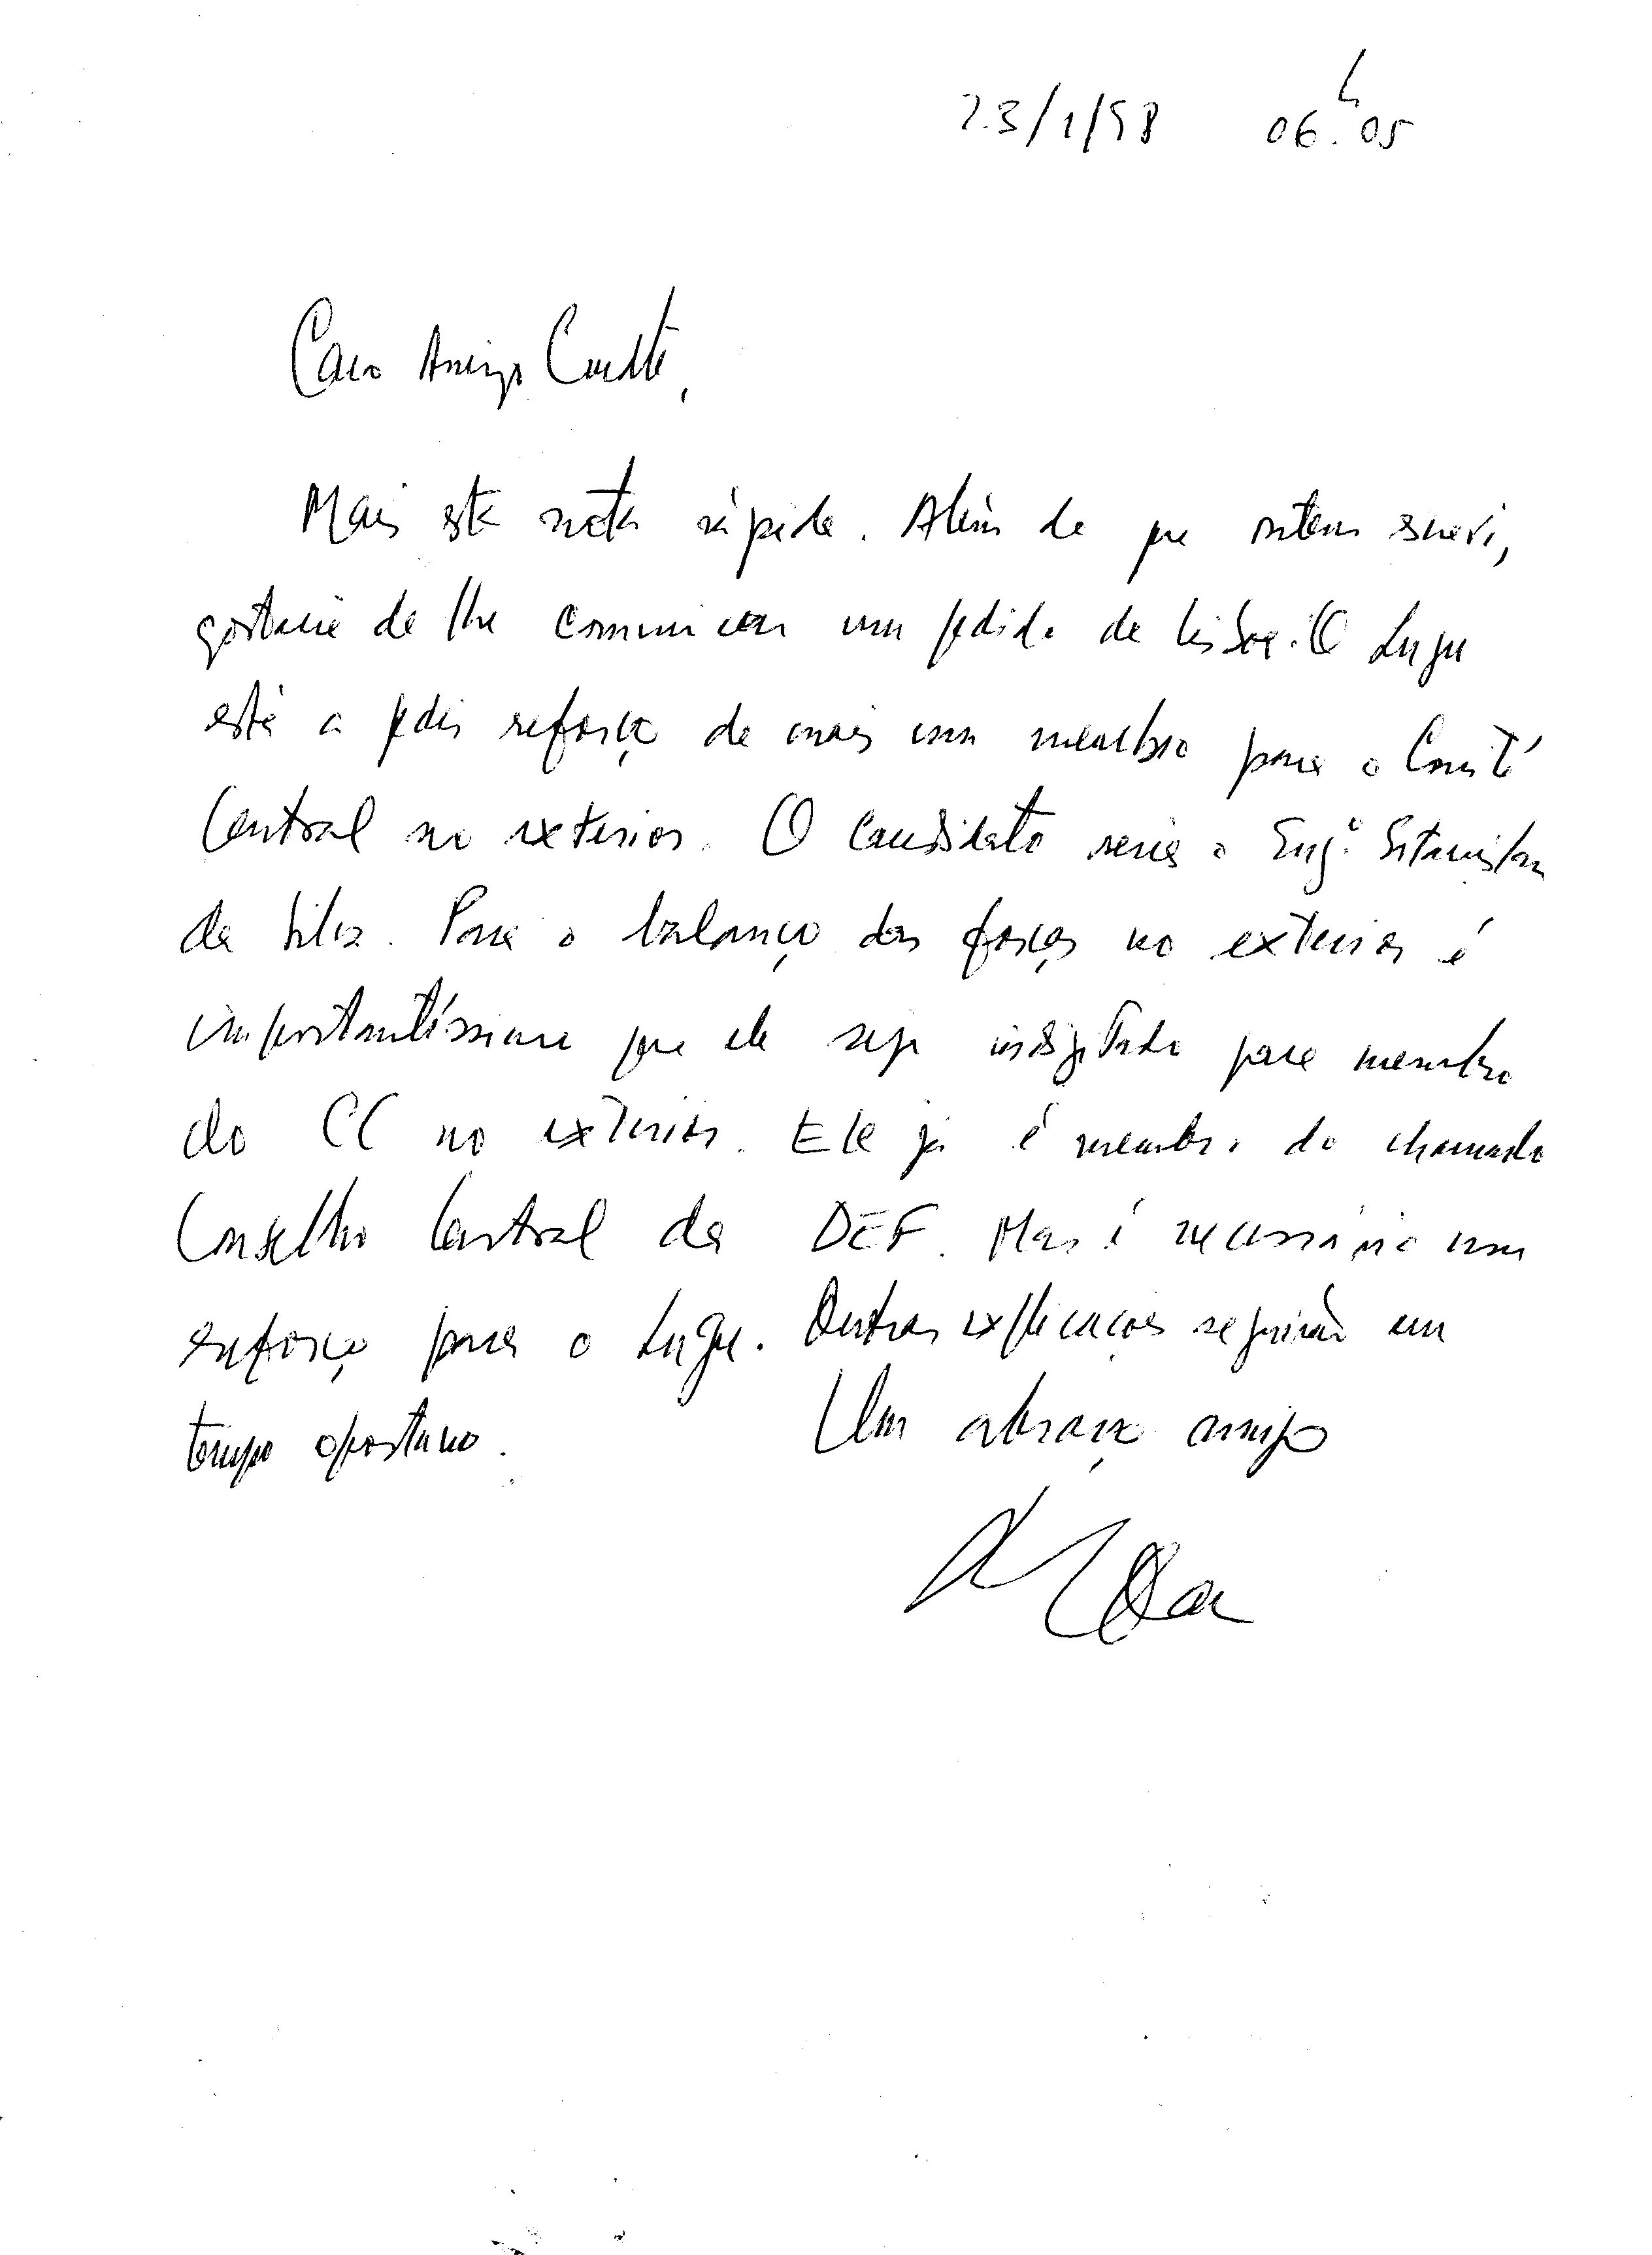 23/1/98 06.05
Caro Amigo
Mais esta nota rápida. Além do que ontem escrevi,
gostaria de lhe comunicar um pedido de Lisboa. O
está a pedir reforço de mais um membro para o Comité
Central no exterior. O candidato seria o Engº Estanislau
da Silva. Para o balanço das forças no exterior é
importantíssimo que ele seja indigitado para membro
do CC no exterior. Ele já é membro do chamado
Conselho Central da DEF. Mas é necessário um
esforço para o. Outras explicações seguirão em
tempo oportuno.
Um abraço amigo